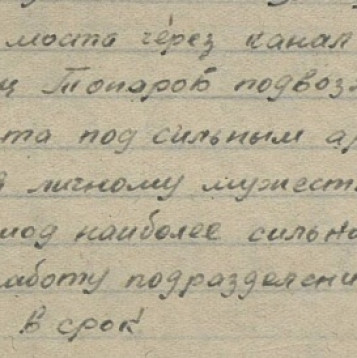 моста через канал
ц Топаров подвоз
та под сильным а
личному мужест
иод наиболее сильно
аботу подразделени
в срок